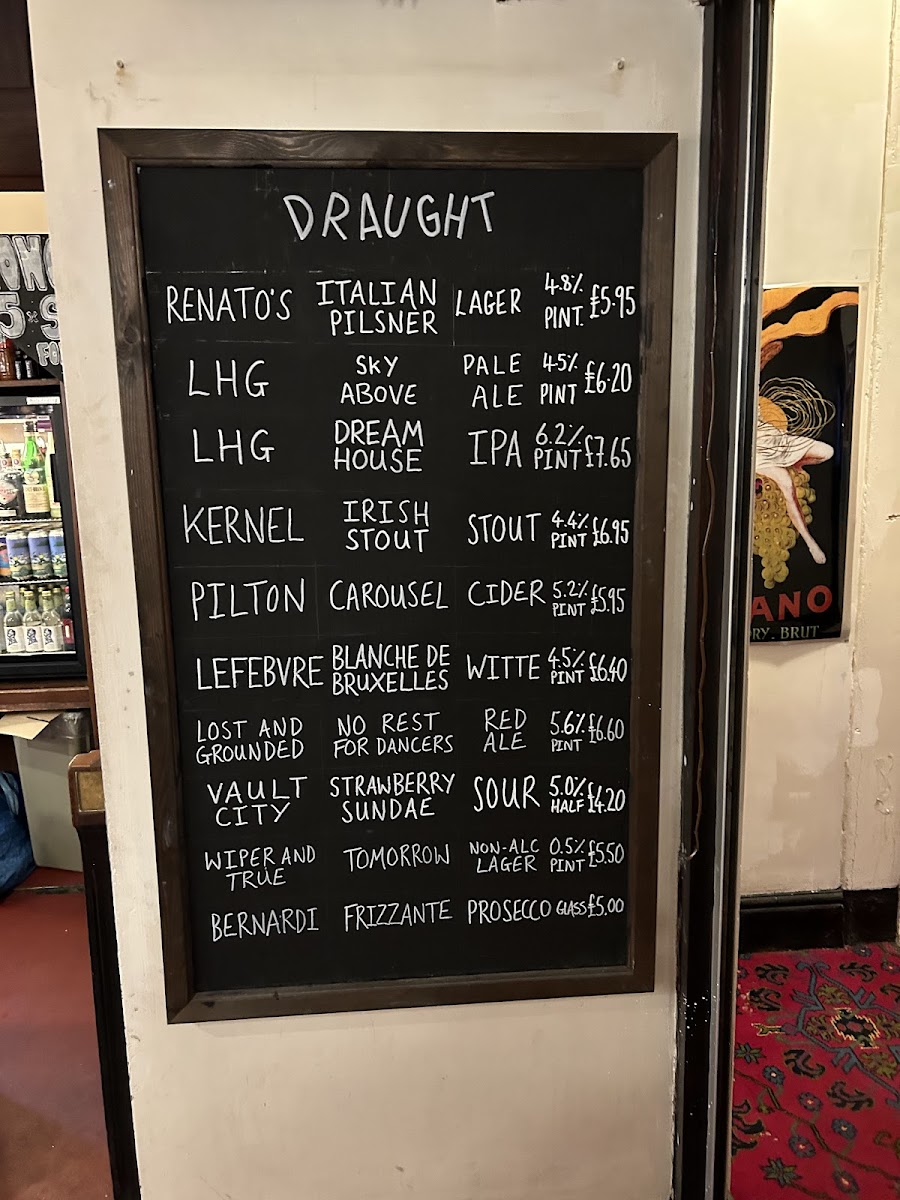 DRAUGHT
RENATO'S ITALIAN PILSNER LAGER 4.8% PINT. £5.95
LHG SKY ABOVE PALE ALE 4.5% PINT £6.20
LHG DREAM HOUSE IPA 6.2% PINT £7.65
KERNEL IRISH STOUT STOUT 4.4% PINT £6.95
PILTON CAROUSEL CIDER 5.2% PINT £5.95
LEFEBVRE BLANCHE DE BRUXELLES WITTE 4.5% PINT £6.40
LOST AND GROUNDED NO REST FOR DANCERS RED ALE 5.6% PINT £6.60
VAULT CITY STRAWBERRY SUNDAE SOUR 5.0% HALF £4.20
WIPER AND TRUE TOMORROW NON-ALC LAGER 0.5% PINT £5.50
BERNARDI FRIZZANTE PROSECCO GLASS £5.00
ANO
RY. BRUT